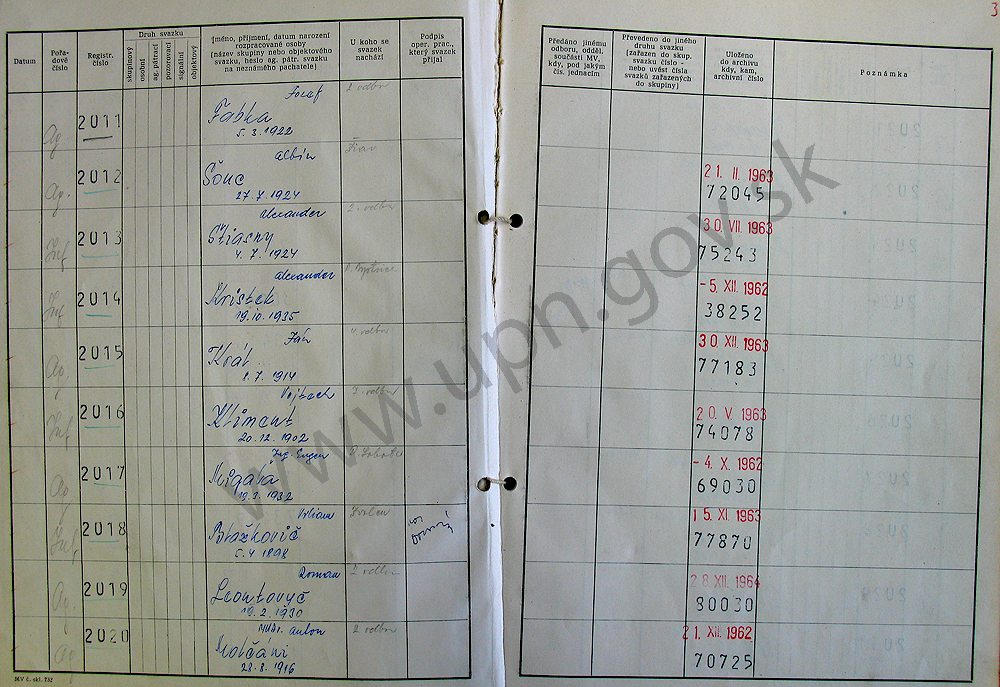 3
Datum
Pořa-
dové
číslo
Registr.
číslo
Druh svazku
skupinový
osobní
ag. pátrací
pozorovací
signální
objektový
Jméno, příjmení, datum narození
rozpracované osoby
(název skupiny nebo objektového
svazku, heslo ag. pátr. svazku
na neznámého pachatele)
U koho se
svazek
nachází
Podpis
oper. prac.,
který svazek
přijal
Předáno jinému
odboru, odděl.
součásti MV,
kdy, pod jakým
čís. jednacím
Převedeno do jiného
druhu svazku
(zařazen do skup.
svazku číslo -
nebo uvést čísla
svazků zařazených
do skupiny)
Uloženo
do archivu
kdy, kam,
archivní číslo
Poznámka
Ag 2011 Jozef 2 odbor
Fabka
5. 3. 1922
Ag. 2012 Albín
Šonc
27. 7. 1924
21. II. 1963
72045
Inf 2013 Alexander 2. odbor
Štiasny
4. 7. 1924
30. VII. 1963
75243
Inf 2014 Alexander
Kristek
19. 10. 1935
- 5. XII. 1962
38252
Ag. 2015 Ján odbor
7. 1914
30. XII. 1963
77183
Inf 2016 Vojtech odbor
Kliment
20. 12. 1902
20. V. 1963
74078
Ag 2017 Ing. Eugen
Migaľa
1932
- 4. X. 1962
69030
Inf. 2018 Viliam Zvolen
Blažkovič
5. 4 1898
15. XI. 1963
77870
Ag. 2019 Roman 2 odbor
Leontovyč
2 1930
28. XII. 1964
80030
Ag 2020 MUDr. Anton 2 odbor
Molčáni
28. 8. 1916
21. XII. 1962
70725
MV č. skl. 732
www.upn.gov.sk